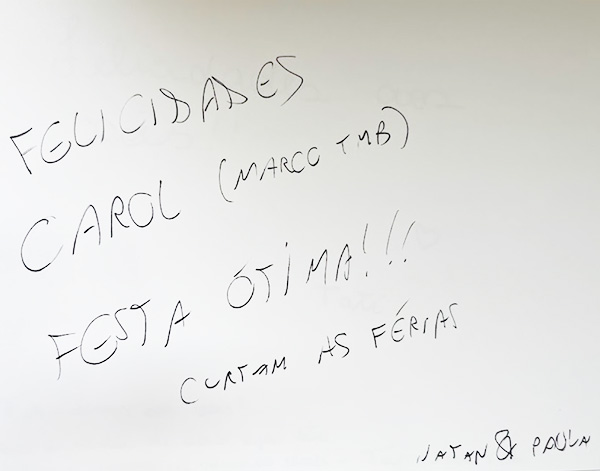 FELICIDADES
CAROL (MARCO TMB)
FESTA ÓTIMA!!!
CURTAM AS FÉRIAS
NATAN & PAULA